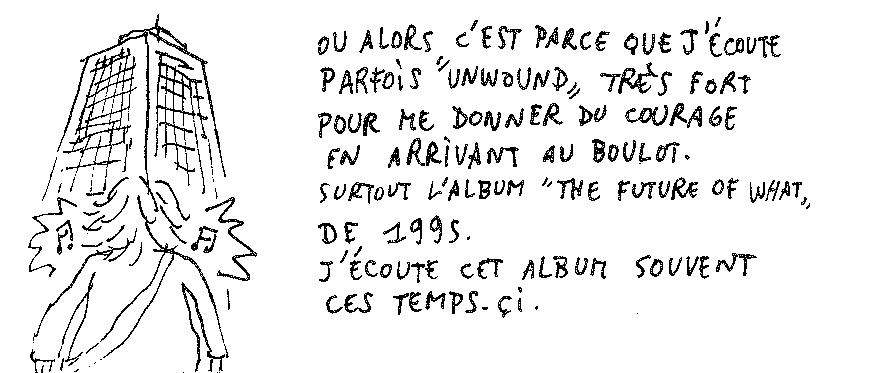 OU ALORS C'EST PARCE QUE J'ÉCOUTE
PARFOIS "UNWOUND" TRÈS FORT
POUR ME DONNER DU COURAGE
EN ARRIVANT AU BOULOT.
SURTOUT L'ALBUM "THE FUTURE OF WHAT"
DE 1995.
J'ÉCOUTE CET ALBUM SOUVENT
CES TEMPS-ÇI.